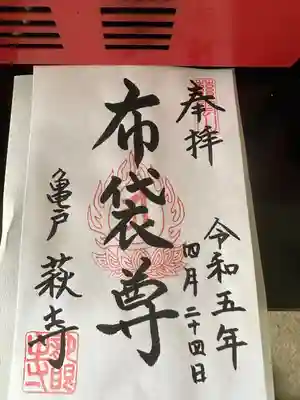 奉拝
令和五年
四月二十四日
布袋尊
亀戸 萩寺